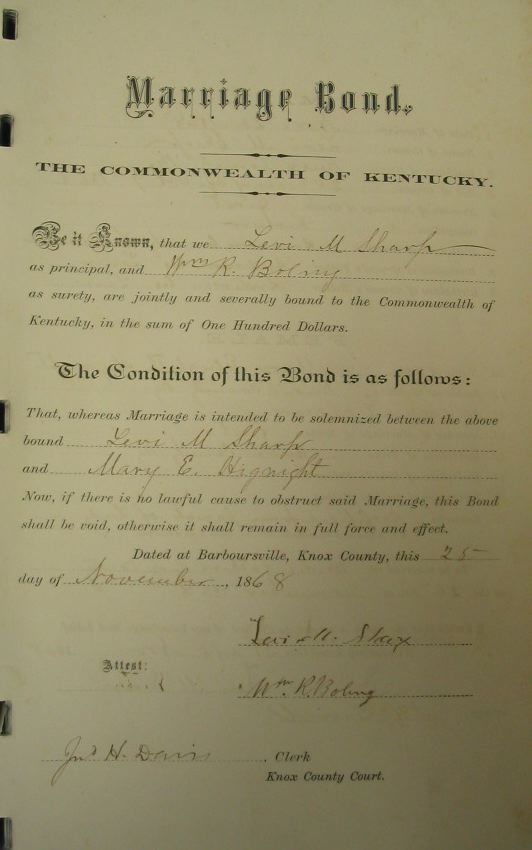 Marriage Bond.
THE COMMONWEALTH OF KENTUCKY.
Be it Known, that we Levi M Sharp
as principal, and Wm R. Boling
as surety, are jointly and severally bound to the Commonwealth of
Kentucky, in the sum of One Hundred Dollars.
The Condition of this Bond is as follows:
That, whereas Marriage is intended to be solemnized between the above
bound Levi M Sharp
and Mary E. Hignight
Now, if there is no lawful cause to obstruct said Marriage, this Bond
shall be void, otherwise it shall remain in full force and effect.
Dated at Barboursville, Knox County, this 25
day of November, 1868
Levi M. Sharp
Attest:
Wm. R. Boling
Jno H. Davis, Clerk
Knox County Court.